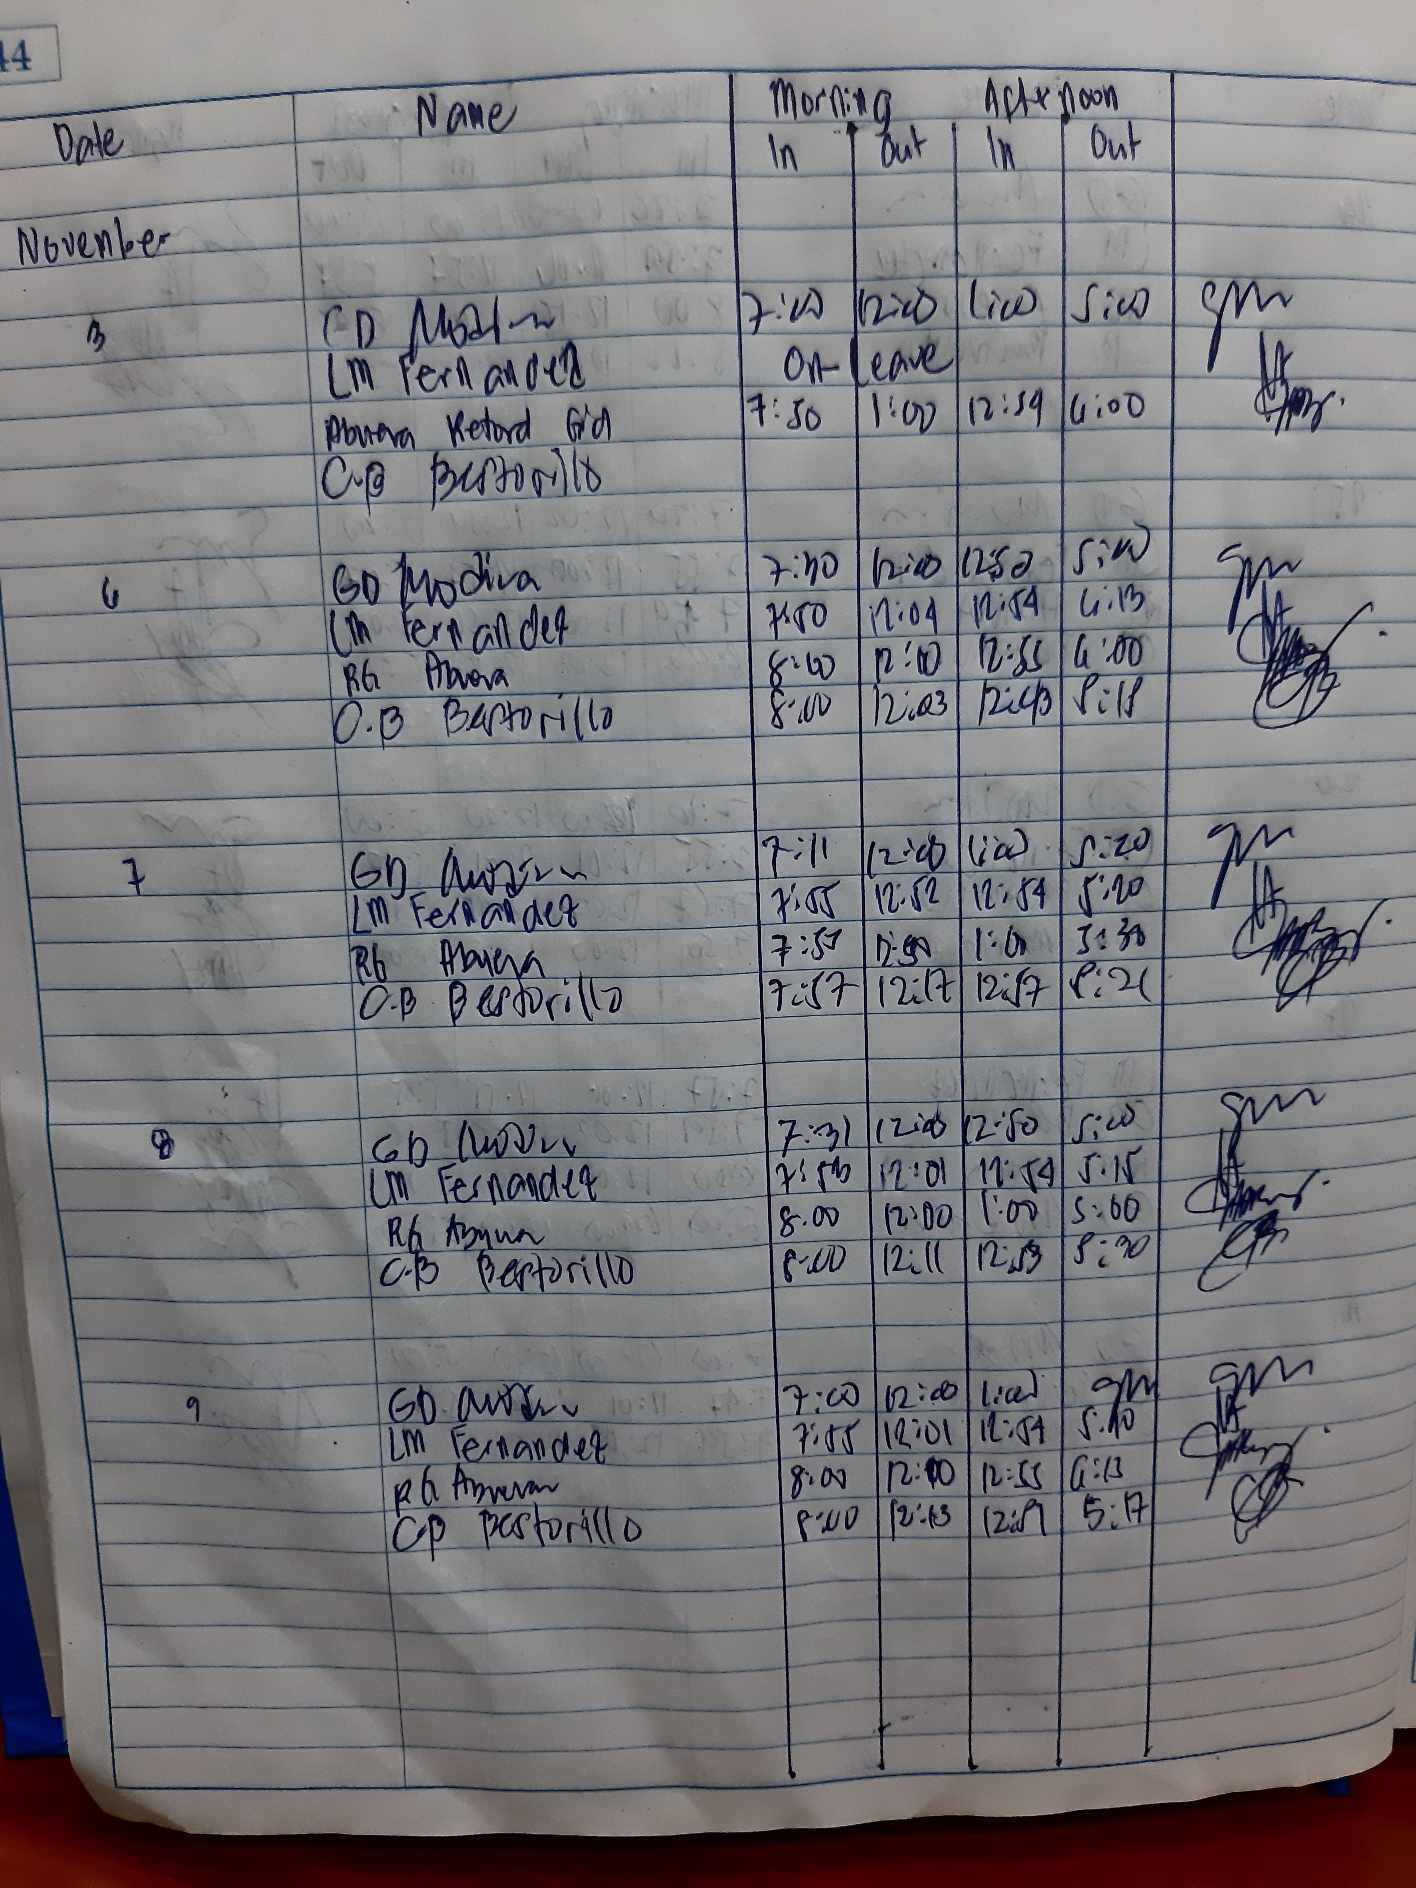 44
Date Name Morning Afternoon
In Out In Out
November
3 GD 7:00 12:00 1:00 5:00
LM Fernandez On Leave
7:50 1:00 12:59 6:00
C.B Bestorillo
6 GD Modina 7:30 12:00 12:50 5:00
LM Fernandez 7:50 12:04 12:54 6:13
RG Abuera 8:00 12:00 12:55 6:00
C.B Bestorillo 8:00 12:03 12:43 5:15
7 GD 7:11 12:00 1:00 5:20
LM Fernandez 7:55 12:52 12:54 5:20
RG Abuera 7:57 1:00 5:30
C.B Bestorillo 7:57 12:17 12:57 5:21
8 GD 7:31 12:00 12:50 5:00
LM Fernandez 12:01 12:54 5:15
RG Abuera 8:00 12:00 1:00 5:00
C.B Bestorillo 8:00 12:11 12:53 5:30
9 GD 7:00 12:00 1:00
LM Fernandez 7:55 12:01 12:54 5:10
RG Abuera 8:00 12:00 12:55 6:13
CB Bestorillo 8:00 12:13 12:51 5:17